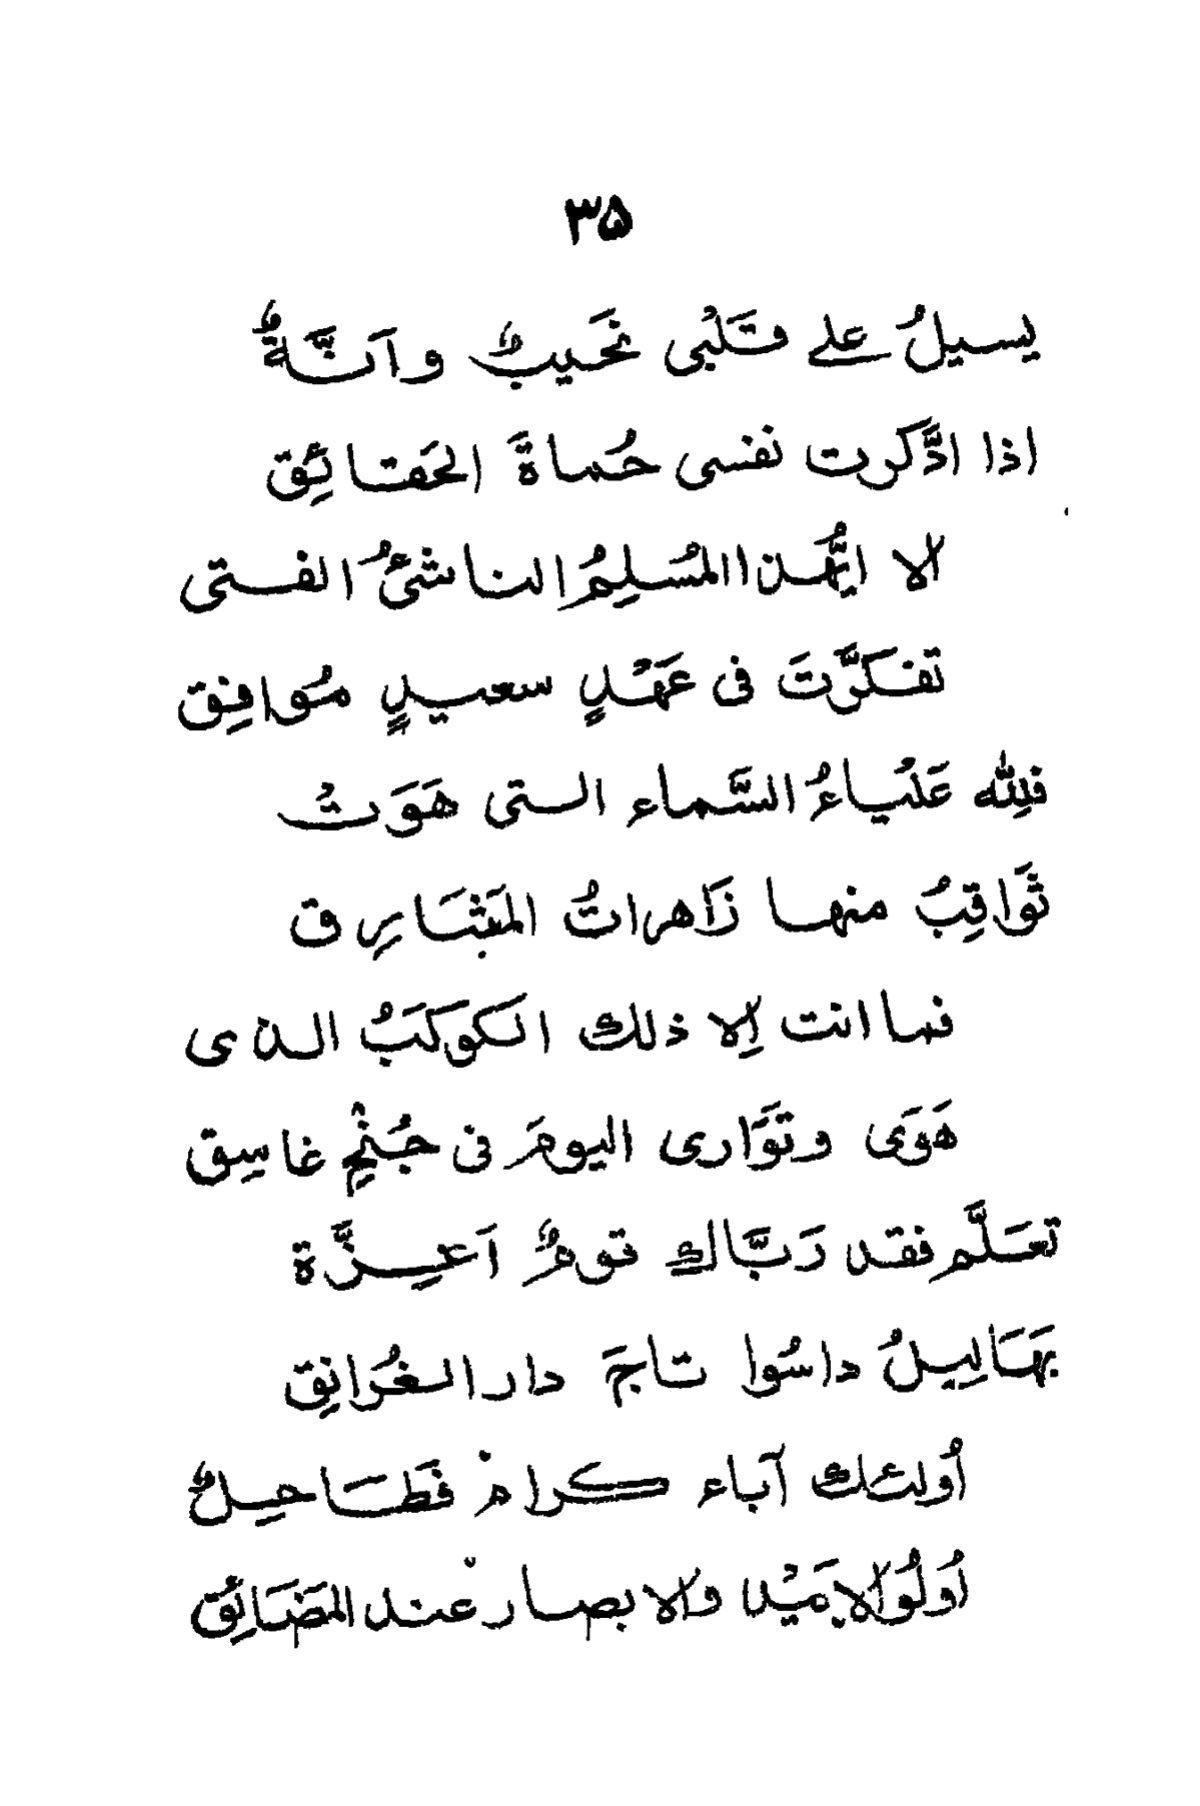 ۳۵
يسيلُ على قَلْبى نَحيبٌ وأَنَّةٌ
اذا ادَّكرت نفسى حُماةَ الحَقائِق
الا ايُّهذا المُسْلِمُ الناشئُ الفتى
تفكَّرْتَ فى عَهْدٍ سعيدٍ مُوافِق
فلِلّه عَلْياءُ السَّماء التى هَوَتْ
ثَوَاقِبُ منها زَاهراتُ المَشَارِق
فما انت اِلا ذلك الكَوكَبُ الذى
هَوَى وتَوَّارى اليومَ فى جُنْحِ غاسِق
تعَلَّم فقد رَبَّاك قومٌ اَعِزَّة
بَهَالِيلُ داسُوا تاجَ دار الغُرَانِق
أُولئك آباء كرامْ فَطَاحِلٌ
أُولُوا الاَيْد والابصار عند المَضَائِق